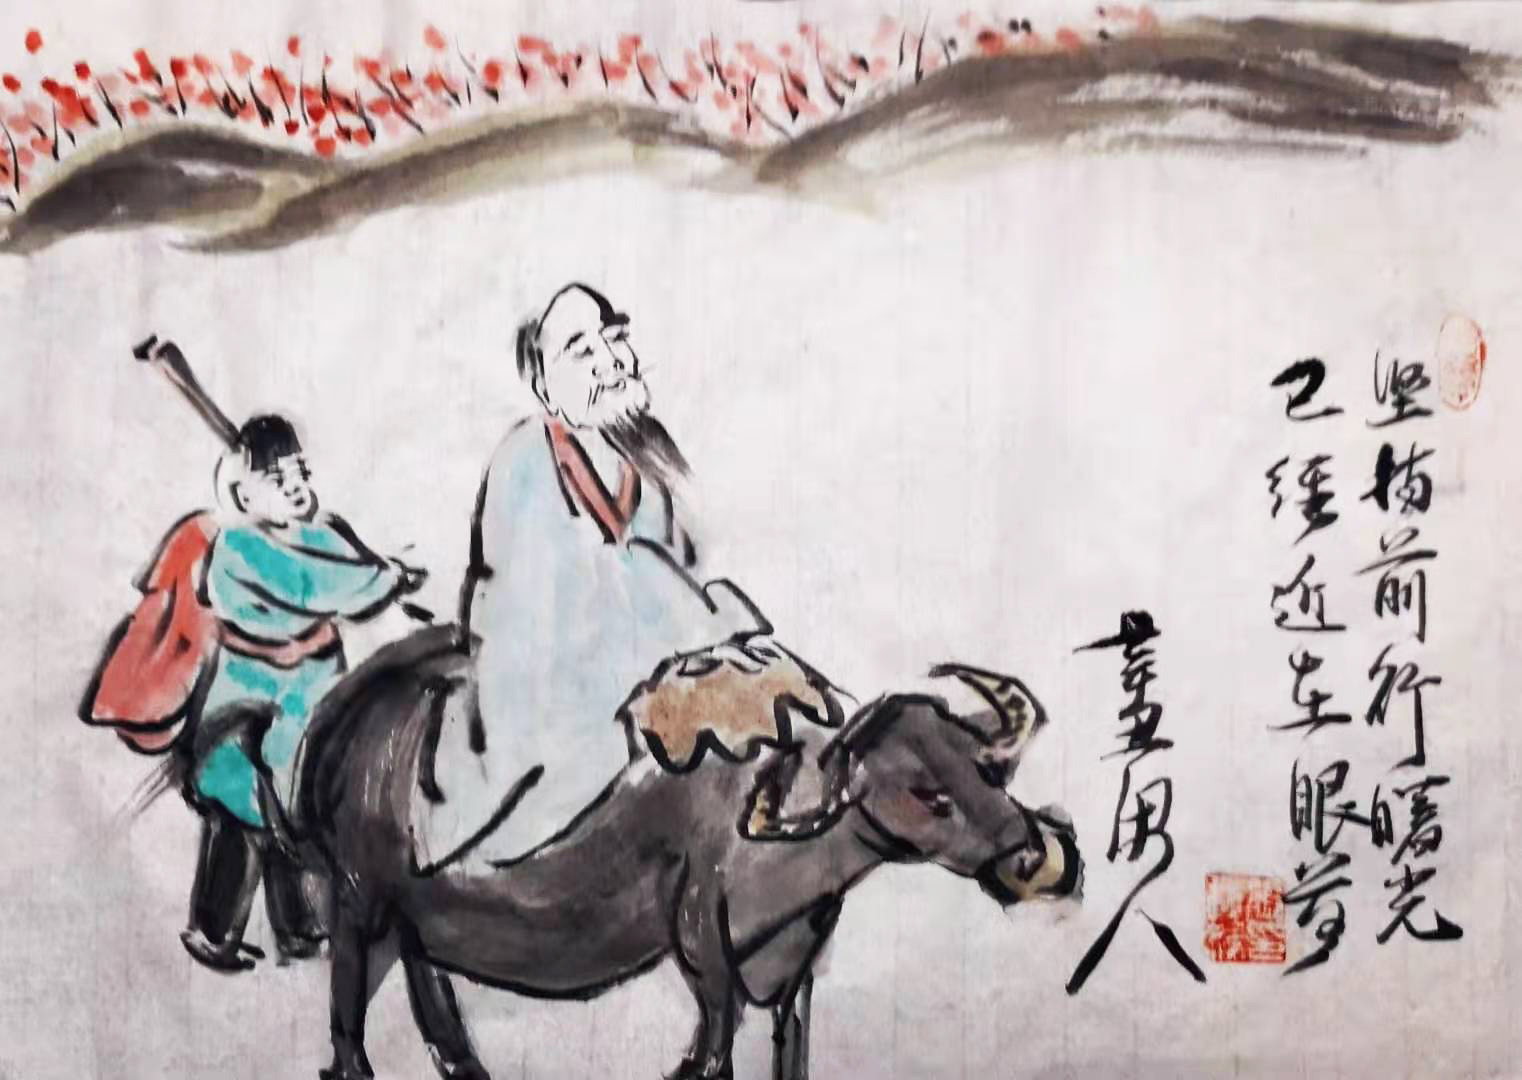 坚持前行曙光
已经近在眼前
男人